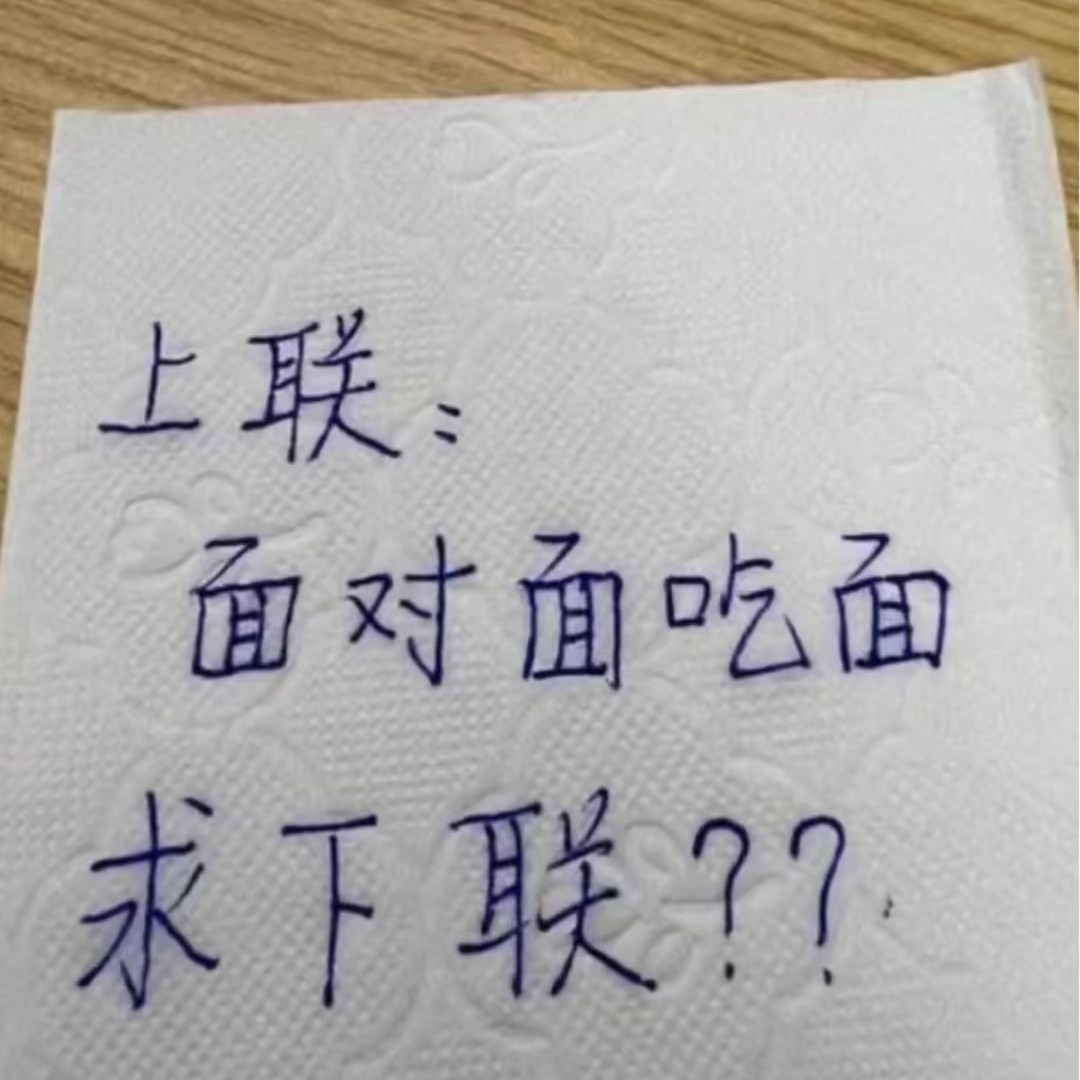 上联：
面对面吃面
求下联??